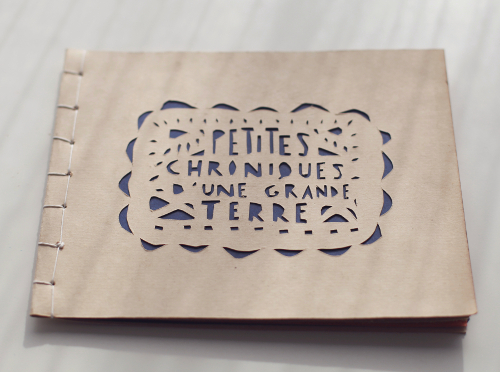 PETITES
CHRONIQUES
D'UNE GRANDE
TERRE